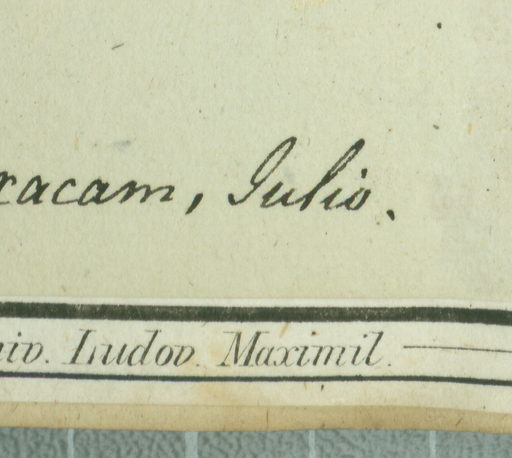 xacam, Julio.
niv. Ludov. Maximil.